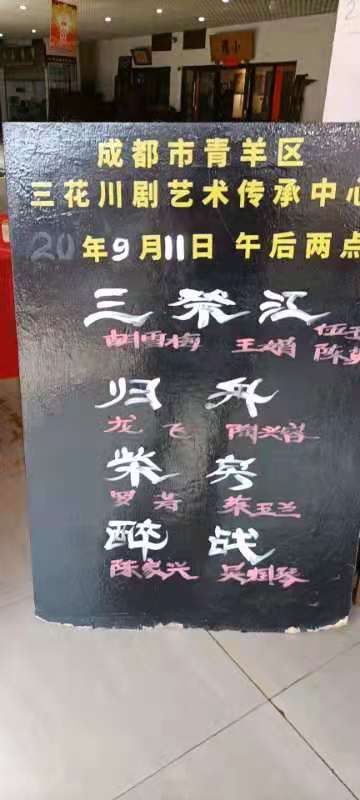 成都市青羊区
三花川剧艺术传承中心
20年9月11日 午后两点
三祭江
胡雨梅 王娟 陈
归舟
龙飞 陶兴容
柴房
罗芳 朱玉兰
醉战
陈家兴 吴桂琴